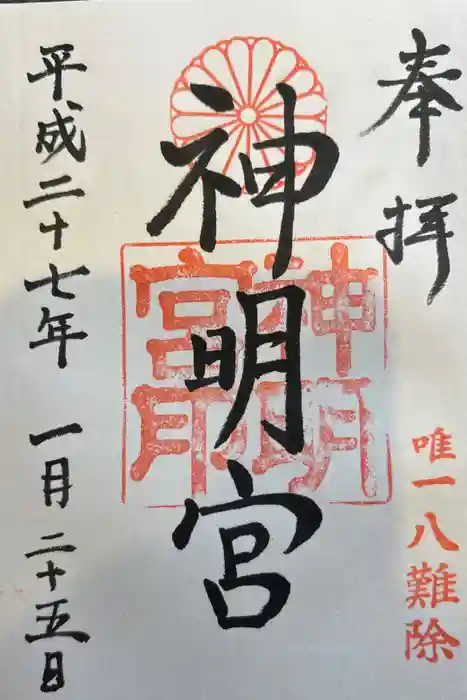 奉拝
唯一八難除
神明宮
神明宮印
平成二十七年 一月二十五日